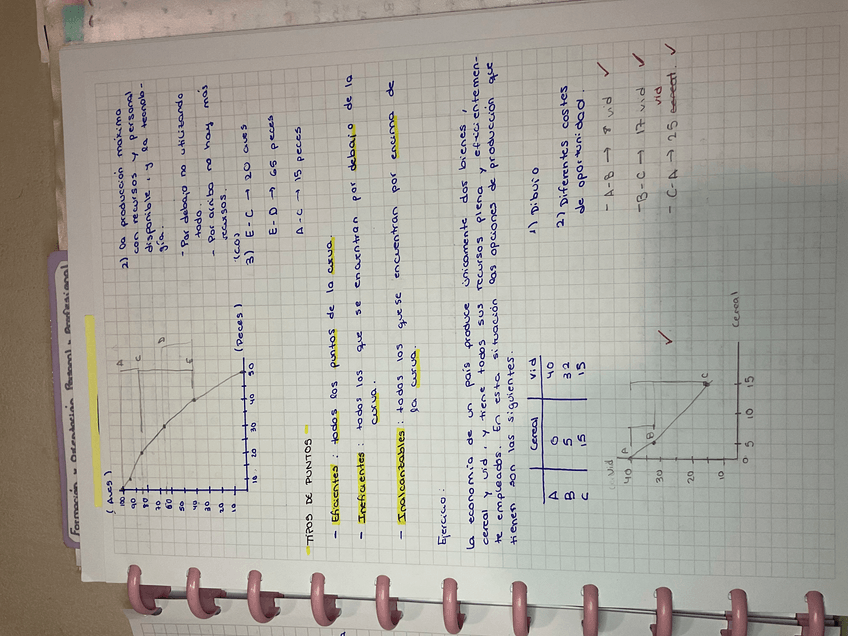 Formación y Orientación Personal y Profesional
(Aves)
100
90
80
70
60
50
40
30
20
10
10
20
30
40
50
(Peces)
A
C
D
E
2) La producción máxima
con recursos y personal
disponible, y la tecnolo-
gía.
- Por debajo no utilizando
todo.
- Por arriba no hay más
recursos.
(CO)
3) E-C → 20 aves
E-D → 65 peces
A-C → 15 peces
- TIPOS DE PUNTOS -
- Eficientes: todos los puntos de la curva.
- Ineficientes: todos los que se encuentran por debajo de la
curva.
- Inalcanzables: todos los que se encuentran por encima de
la curva.
Ejercicio:
La economía de un país produce únicamente dos bienes,
cereal y vid, y tiene todos sus recursos plena y eficientemen-
te empleados. En esta situación las opciones de producción que
tienen son las siguientes.
Cereal Vid
A 0 40
B 5 32
C 15 15
1) Dibujo
2) Diferentes costes
de oportunidad.
vid
40
30
20
10
0 5 10 15
Cereal
A
B
C
- A-B → 8 vid
- B-C → 17 vid
- C-A → 25 cereal. vid